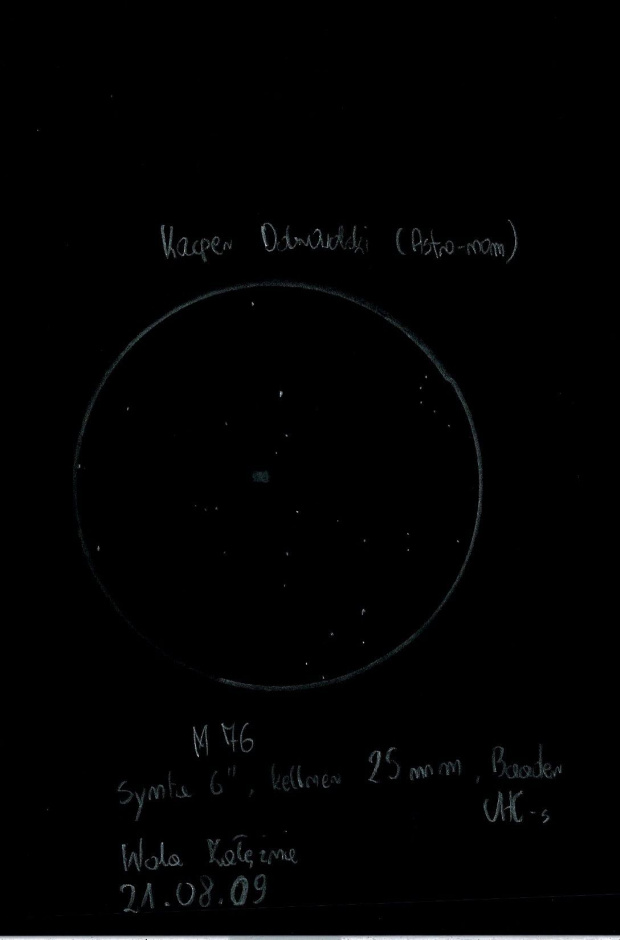 Kacper Dobrowolski (Astro-mam)
M 76
Synta 6", kellner 25 mm, Baader
UHC-s
Wola
21.08.09